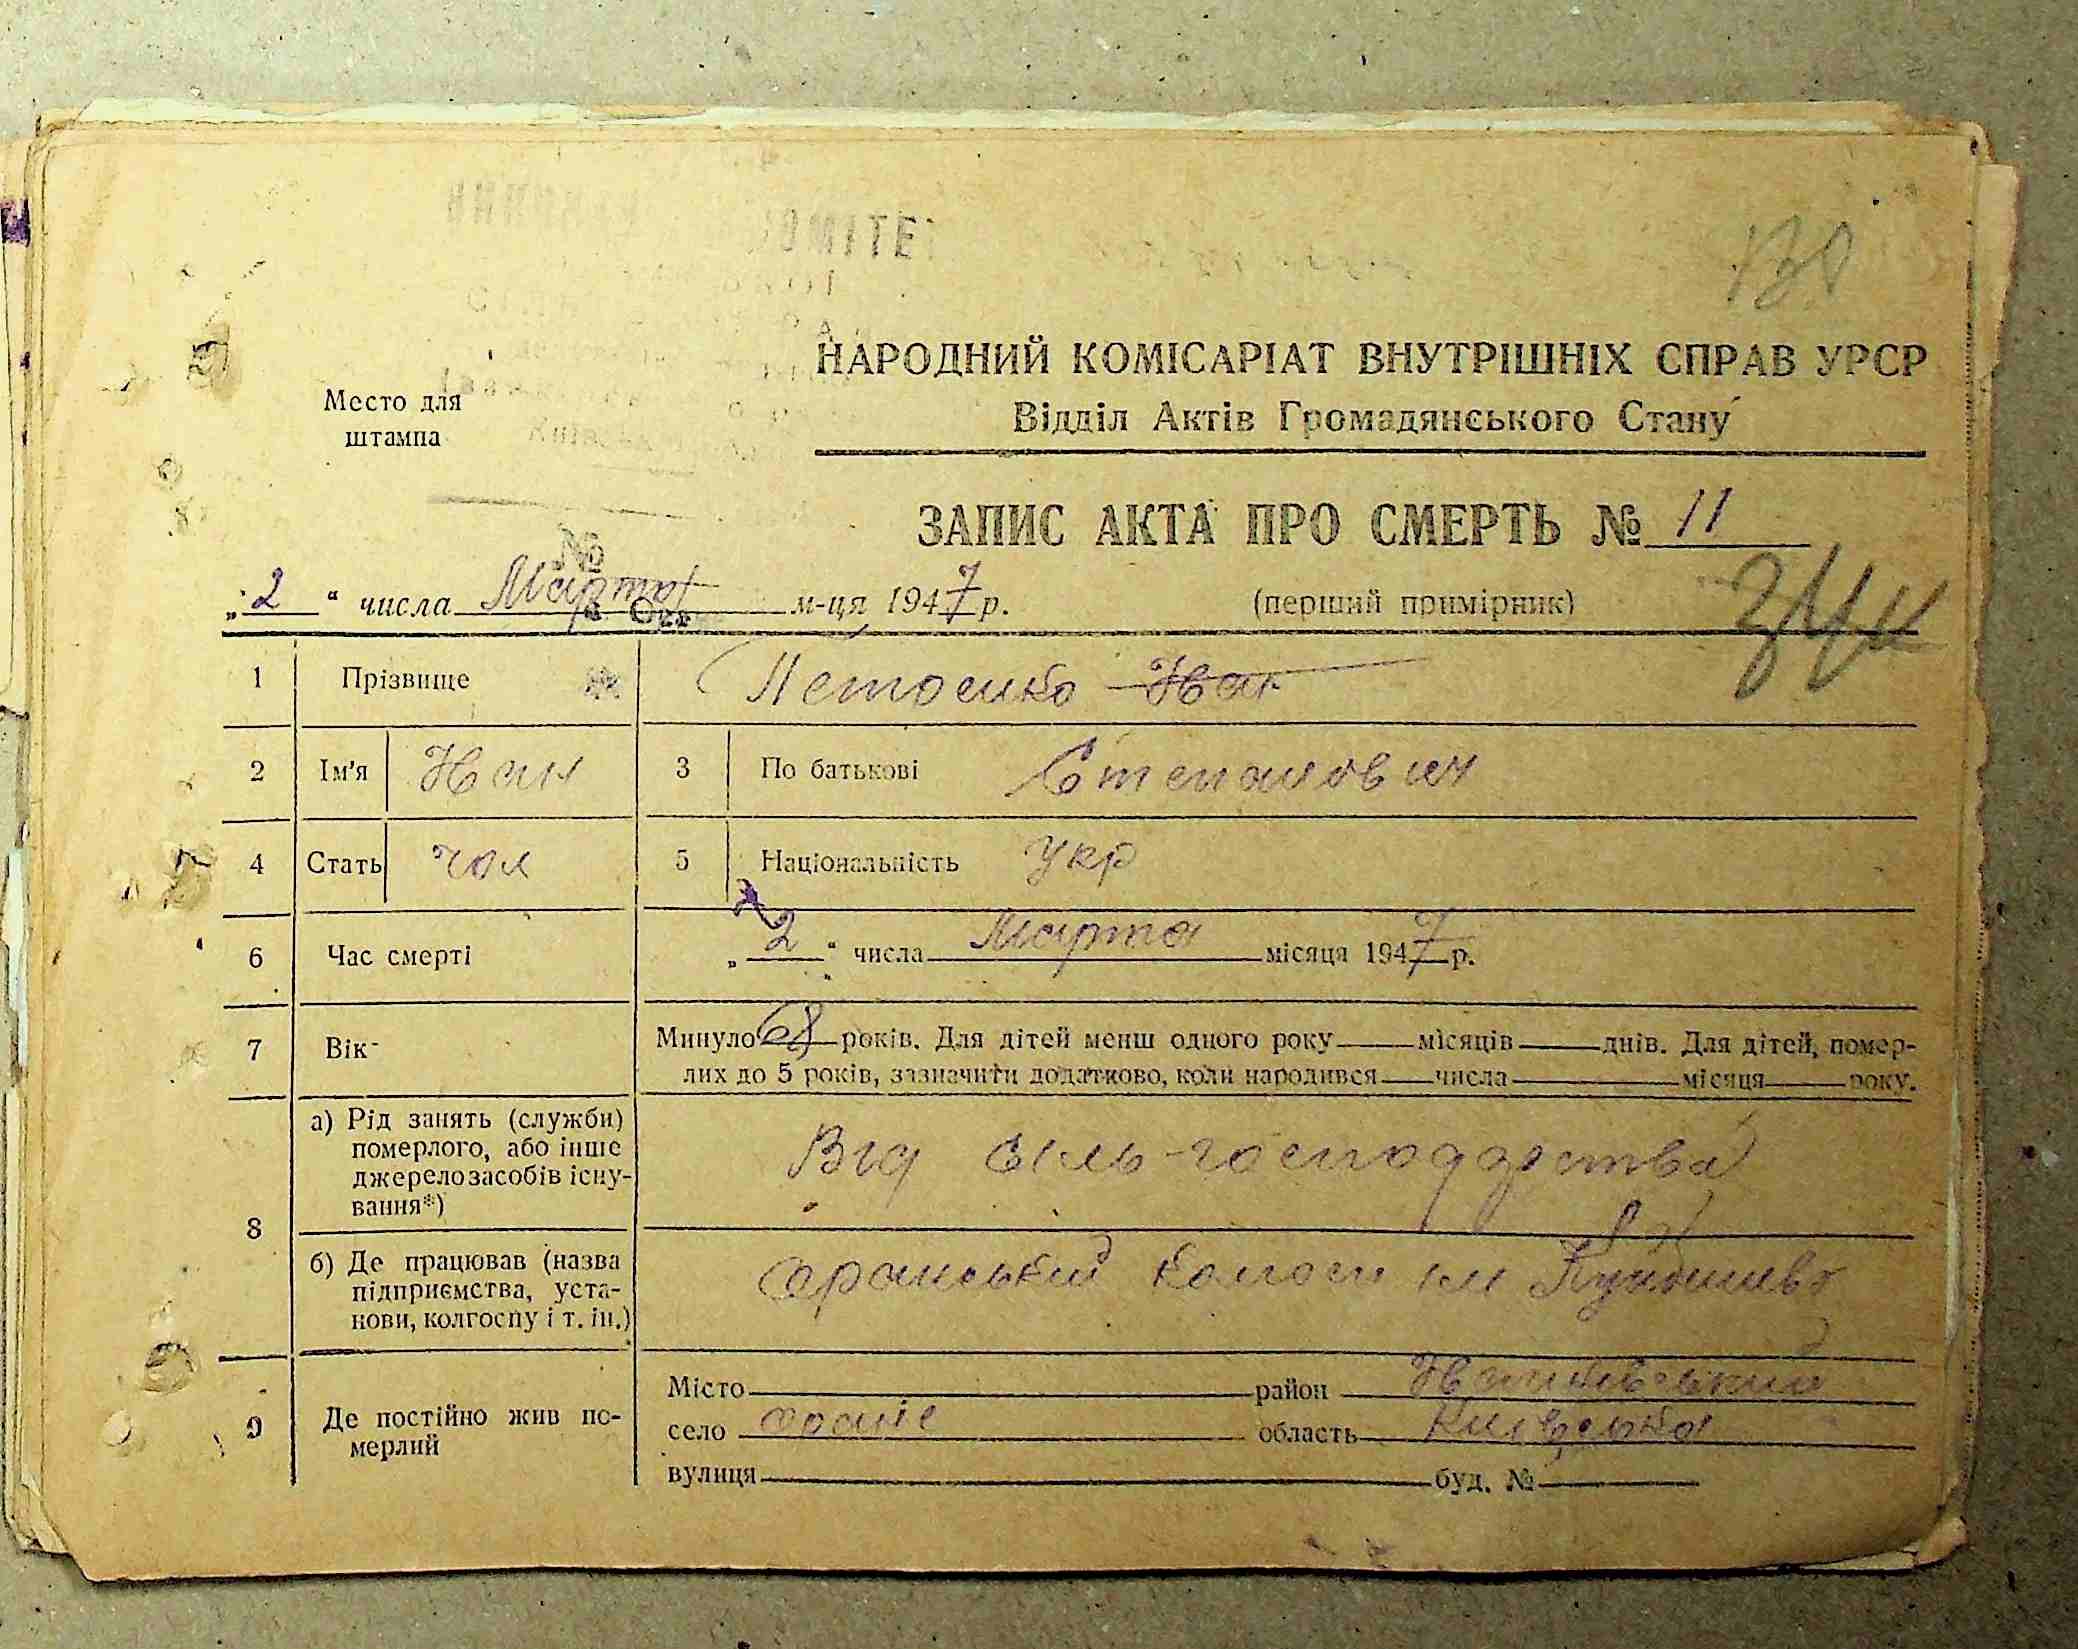 КОМІТЕТ
НАРОДНИЙ КОМІСАРІАТ ВНУТРІШНІХ СПРАВ УРСР
Відділ Актів Громадянського Стану
Место для
штампа
ЗАПИС АКТА ПРО СМЕРТЬ № 11
№
„2“ числа Марта м-ця 1947 р. (перший примірник)
1 Прізвище Иван
2 Ім'я Иван 3 По батькові Степанович
4 Стать чол 5 Національність укр
6 Час смерті „2“ числа Марта місяця 1947 р.
7 Вік Минуло 68 років. Для дітей менш одного року місяців днів. Для дітей, помер-
лих до 5 років, зазначити додатково, коли народився числа місяця року.
8 а) Рід занять (служби)
померлого, або інше
джерело засобів існу-
вання*)
Від сіль-господарства
б) Де працював (назва
підприємства, уста-
нови, колгоспу і т. ін.)
Оранський колгосп ім
9 Де постійно жив по-
мерлий
Місто район Іванківський
село Оране область Київська
вулиця буд. №